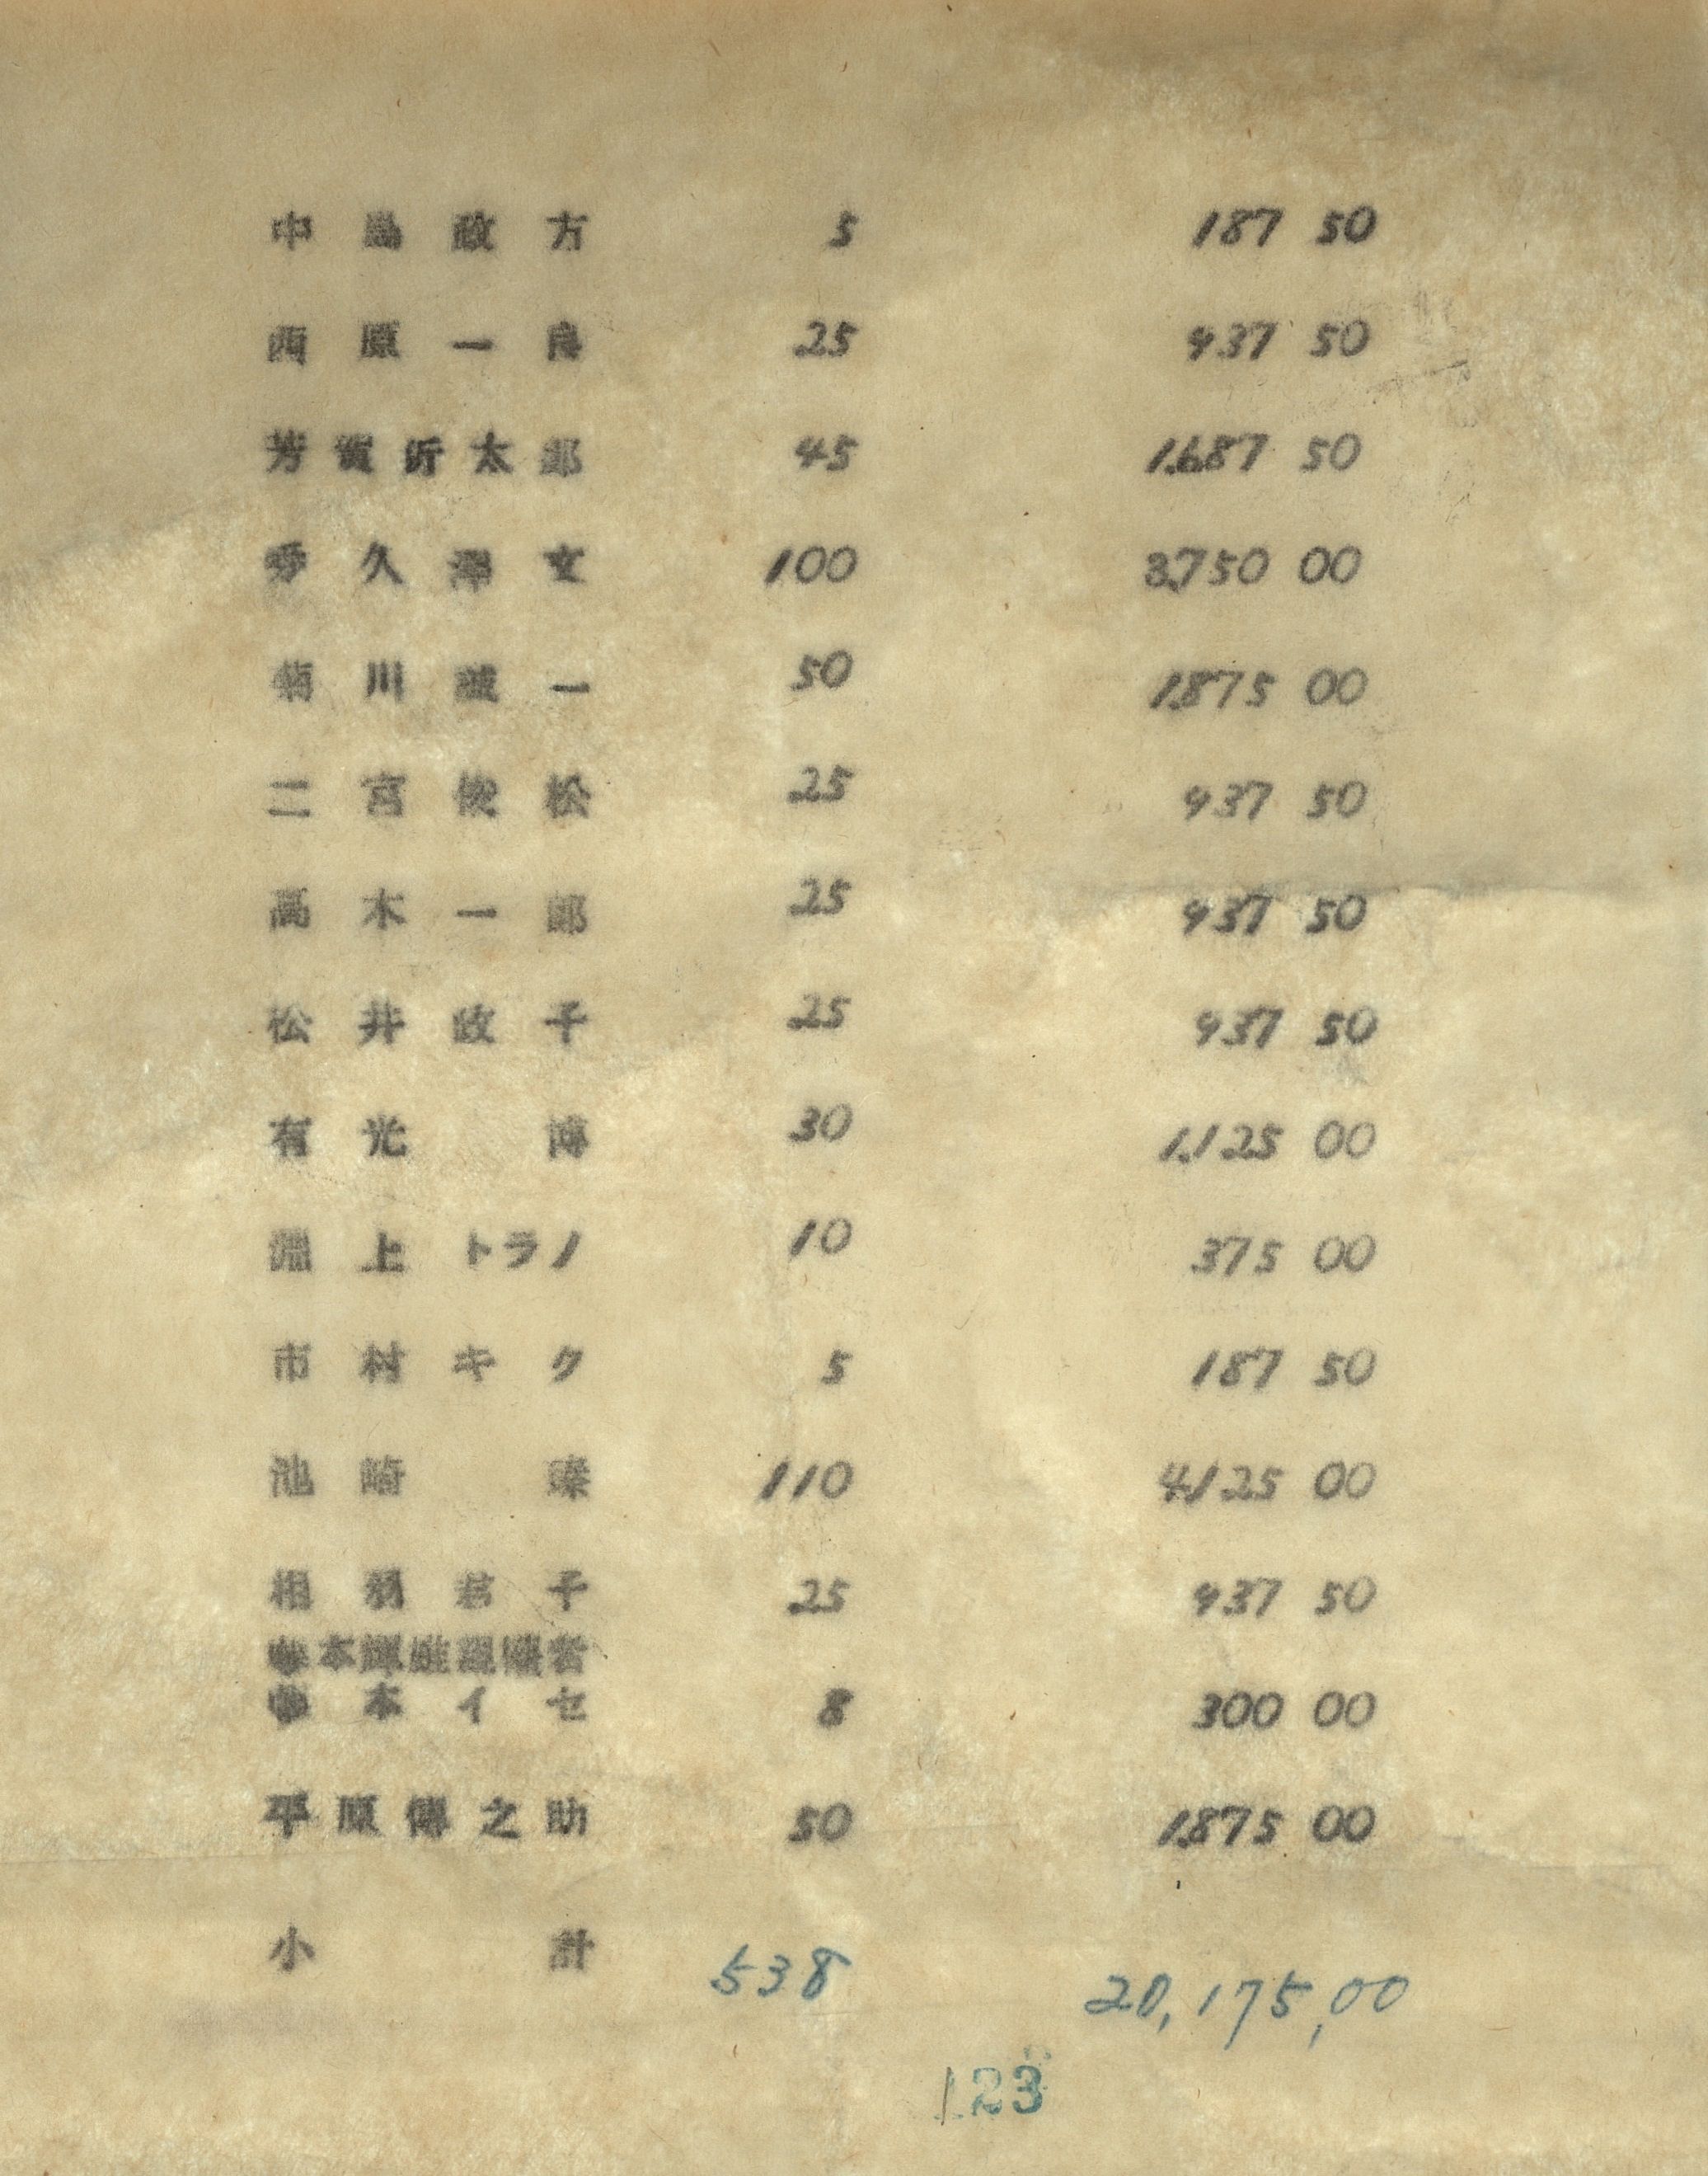 中島政方 5 187 50
西原一良 25 937 50
芳賀沂太郎 45 1.687 50
久 文 100 3.750 00
菊川誠一 50 1.875 00
二宮俊松 25 937 50
高木一郎 25 937 50
松井政子 25 937 50
有光博 30 1.125 00
淵上トラノ 10 375 00
市村キク 5 187 50
池崎 110 4.125 00
相羽君子 25 937 50
本
本イセ 8 300 00
平原傳之助 50 1.875 00
小計 538 20,175,00
123